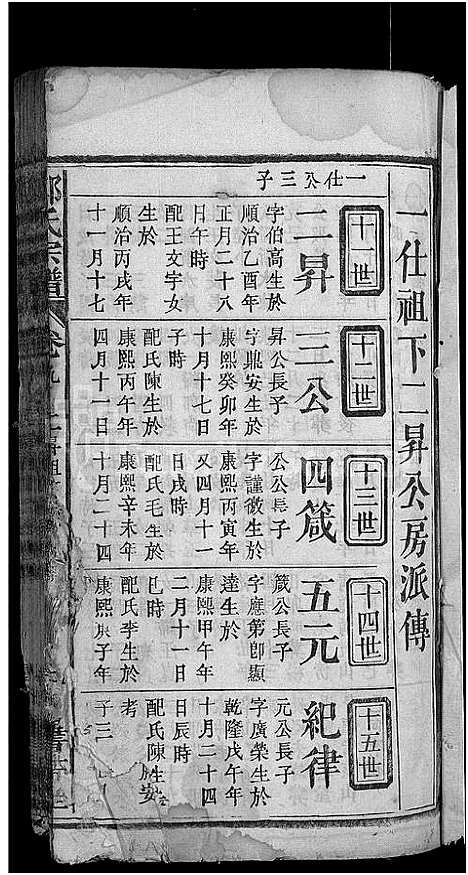 一仕祖下二昇公房派傳
十一世
一仕公三子
二昇
字伯高生於
順治乙酉年
正月二十八
日午時
配王文字女
生於
順治丙戌年
十一月十七
十二世
三公
昇公長子
字鼎安生於
康熙癸卯年
十月十七日
子時
配氏陳生於
康熙丙午年
四月十一日
十三世
四箴
公公長子
字謹微生於
康熙丙寅年
又四月十一
日戌時
配氏毛生於
康熙辛未年
十月二十四
十四世
五元
箴公長子
字應第卽顯
達生於
康熙甲午年
二月十一日
巳時
配氏李生於
康熙庚子年
十五世
紀律
元公長子
字廣榮生於
乾隆戊午年
十月二十四
日辰時
配氏陳生安
考
子三
氏宗譜
卷九